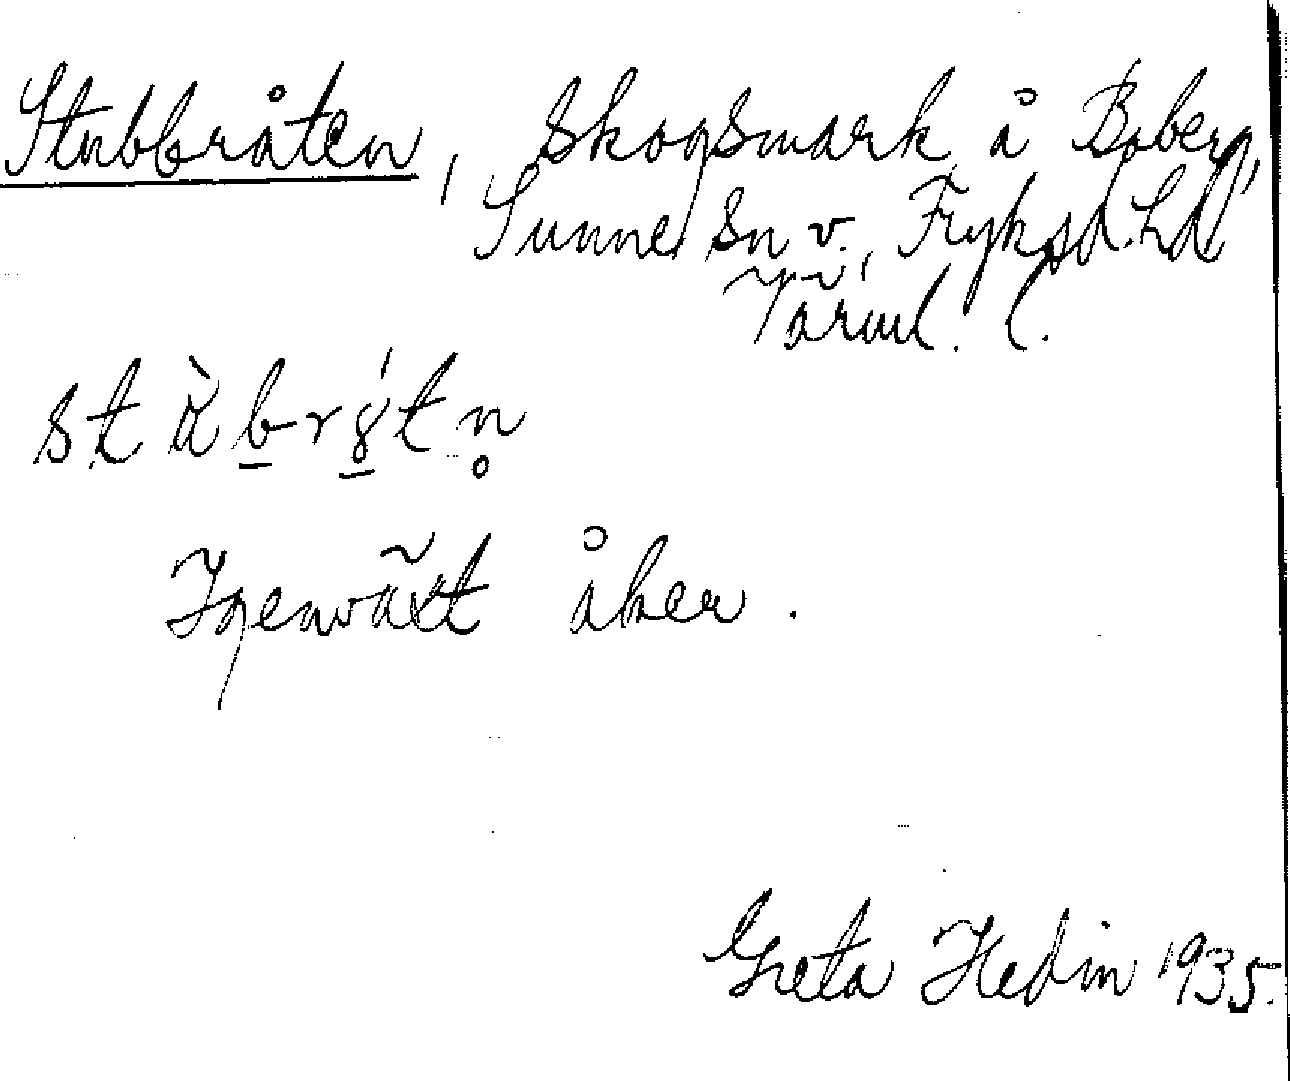 Stubbråten, Skogsmark å Boberg,
Sunne Sn v., Fryksd. hd
Värml. l.
Igenväxt åker.
Greta Hedin 1935.